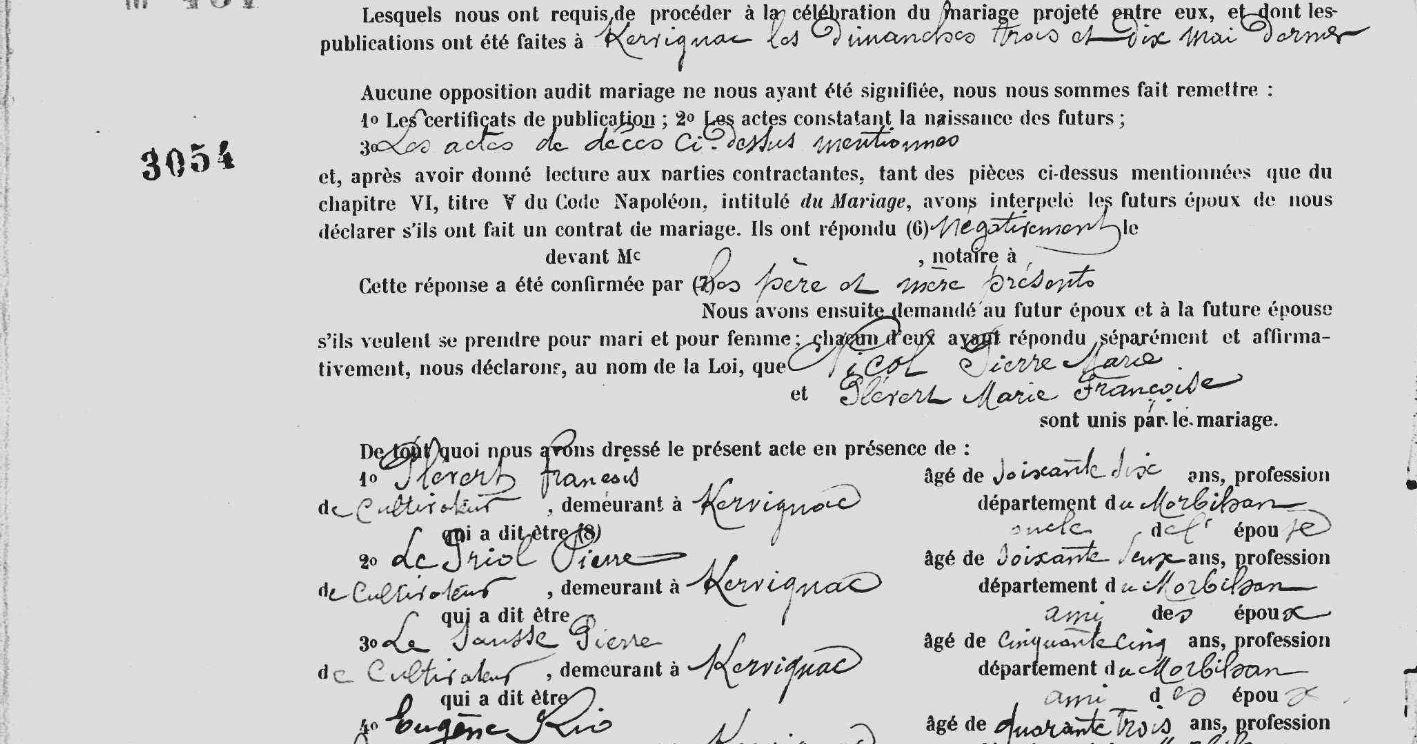 Lesquels nous ont requis de procéder à la célébration du mariage projeté entre eux, et dont les
publications ont été faites à Kervignac les Dimanches trois et dix mai dernier
Aucune opposition audit mariage ne nous ayant été signifiée, nous nous sommes fait remettre :
1o Les certificats de publication ; 2o Les actes constatant la naissance des futurs ;
3o Les actes de décès ci-dessus mentionnés
3054
et, après avoir donné lecture aux parties contractantes, tant des pièces ci-dessus mentionnées que du
chapitre VI, titre V du Code Napoléon, intitulé du Mariage, avons interpelé les futurs époux de nous
déclarer s'ils ont fait un contrat de mariage. Ils ont répondu (6) Négativement le
devant Me , notaire à
Cette réponse a été confirmée par (7) les père et mère présents
Nous avons ensuite demandé au futur époux et à la future épouse
s'ils veulent se prendre pour mari et pour femme ; chacun d'eux ayant répondu séparément et affirma-
tivement, nous déclarons, au nom de la Loi, que Nicol Pierre Marie
et Plévert Marie Françoise
sont unis par le mariage.
De tout quoi nous avons dressé le présent acte en présence de :
1o Plévert françois âgé de soixante dix ans, profession
de Cultivateur , demeurant à Kervignac département du Morbihan
qui a dit être (8) oncle de l' épouse
2o Le Priol Pierre âgé de soixante deux ans, profession
de Cultivateur , demeurant à Kervignac département du Morbihan
qui a dit être ami des époux
3o Le Sausse Pierre âgé de Cinquante cinq ans, profession
de Cultivateur , demeurant à Kervignac département du Morbihan
qui a dit être ami des époux
4o Eugène Rio âgé de quarante trois ans, profession